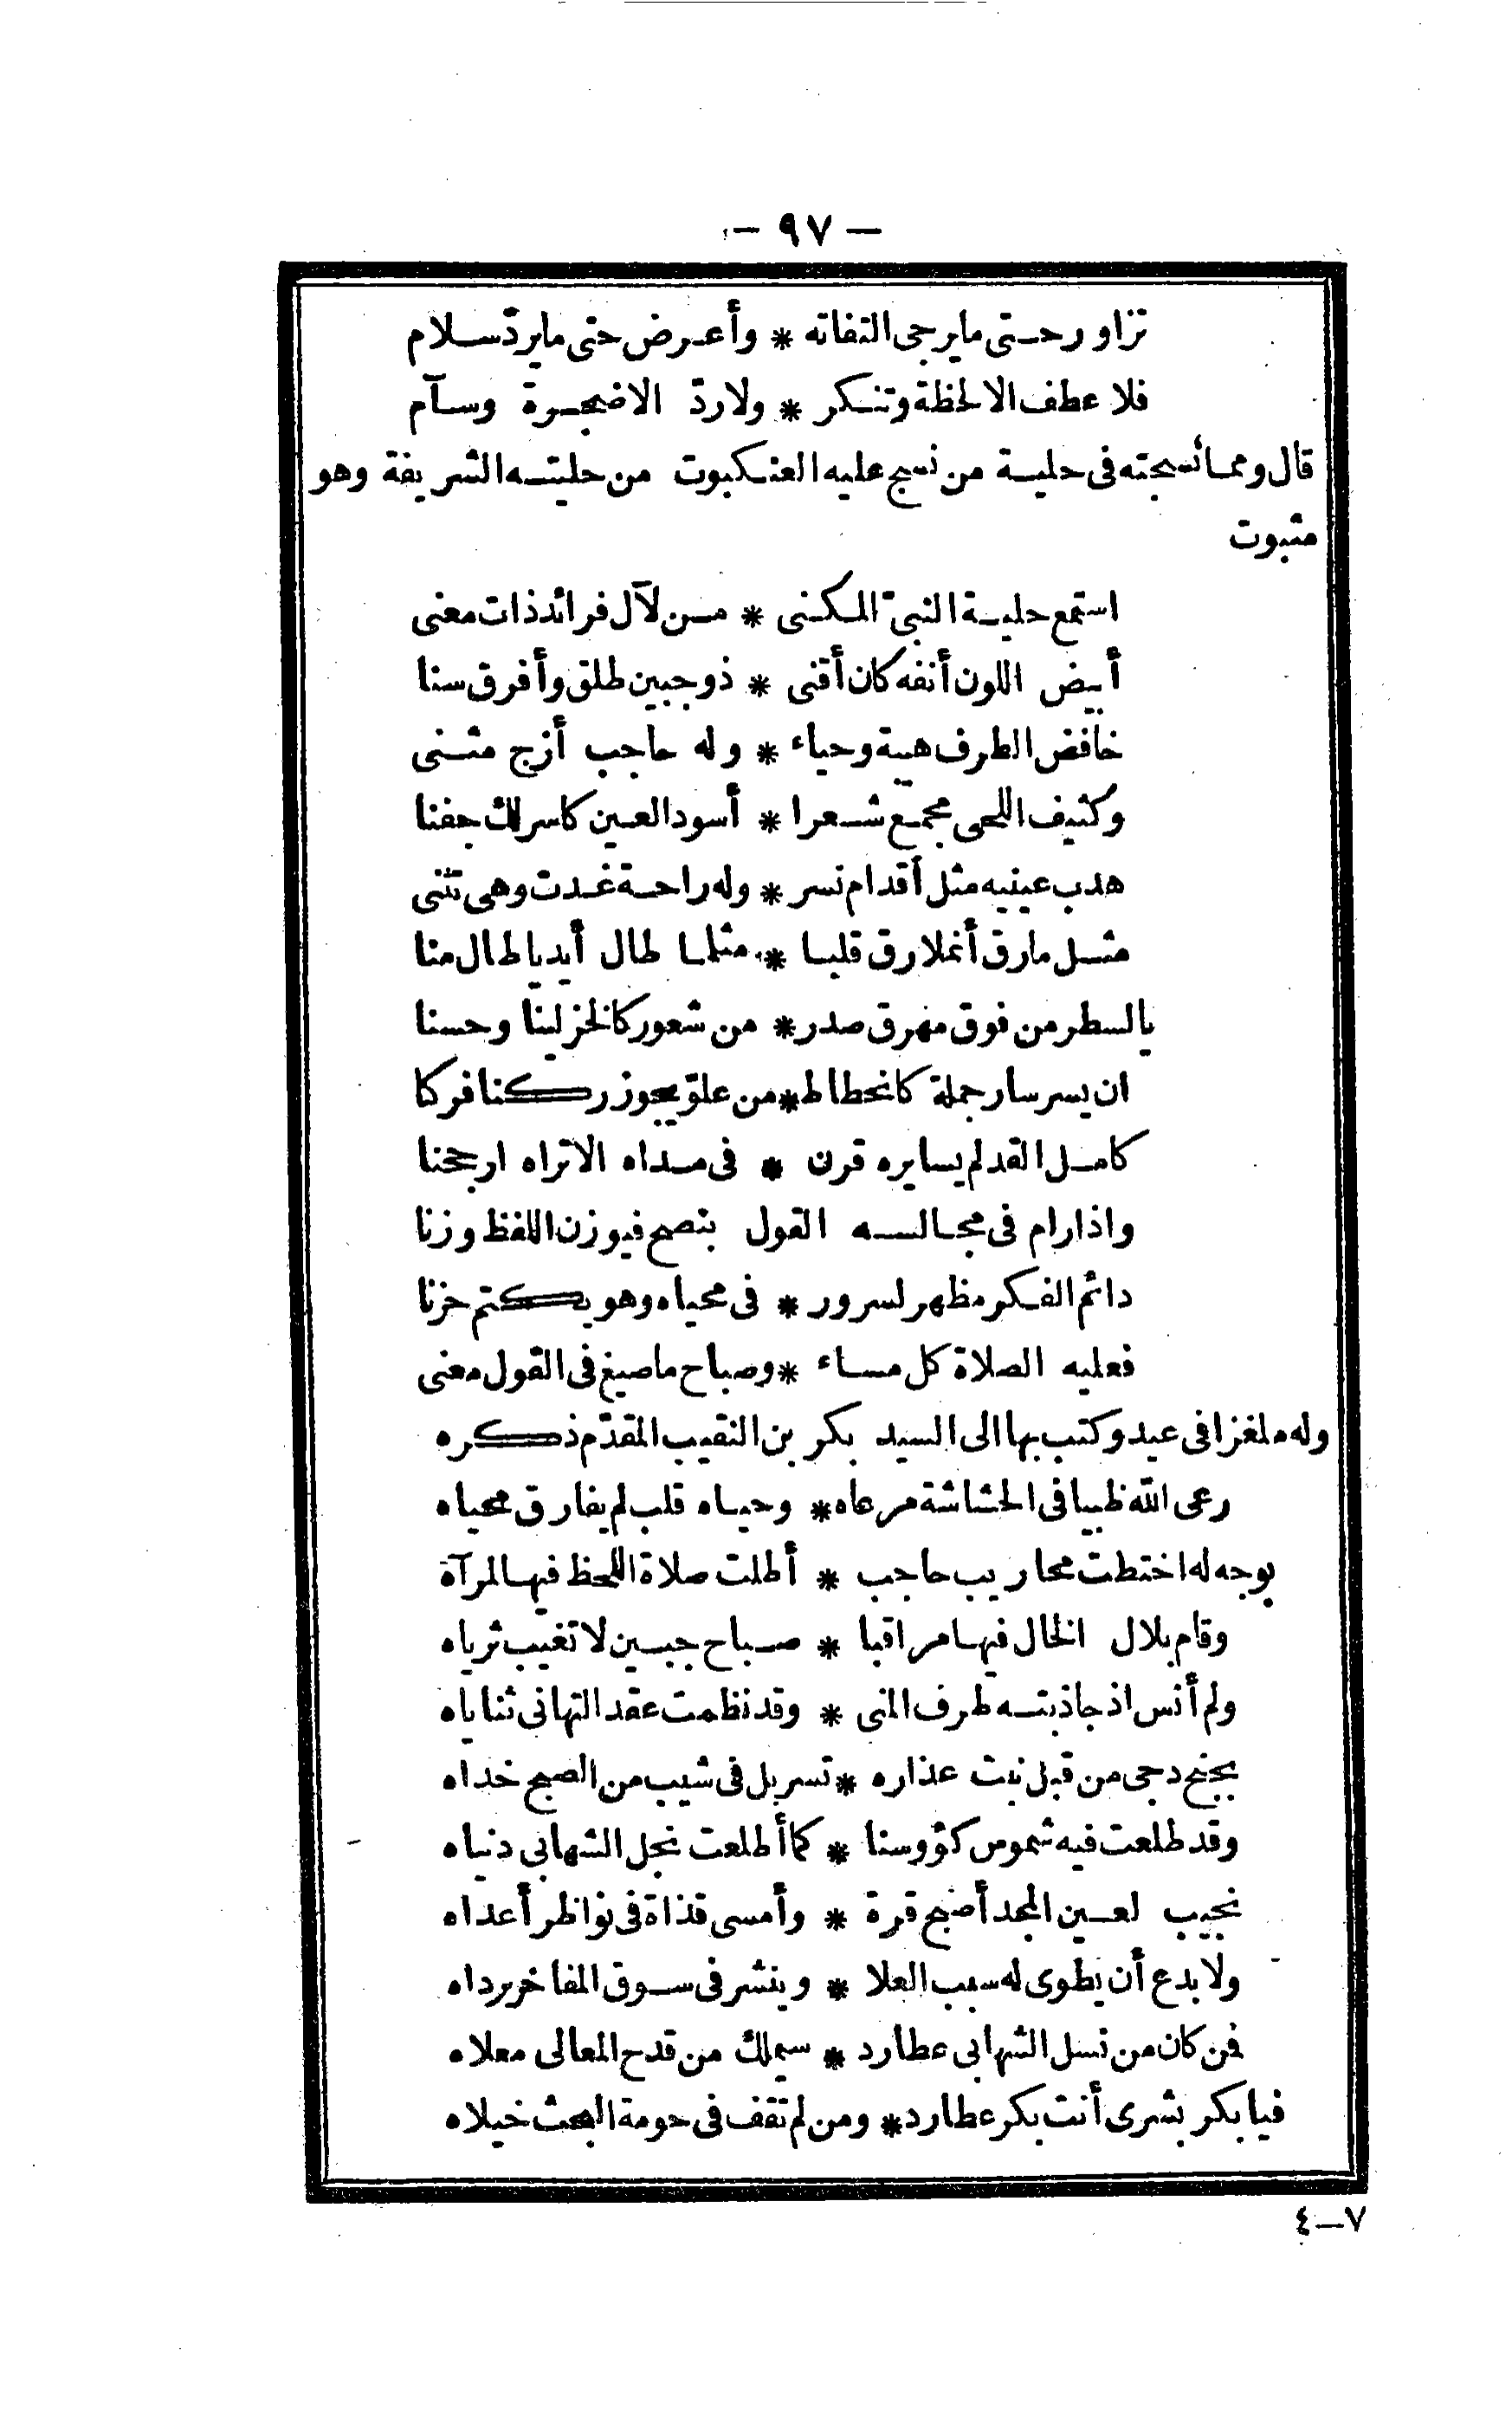 — ٩٧ —
تزاور حتى ما يرجى التفاته * وأعرض حتى ما يردّ سلام
فلا عطف الا لحظة وتنكر * ولا ردّ الا ضجرة وسآم
قال ومما نسجته فى حلية من نسج عليه العنكبوت من حليته الشريفة وهو
مثبوت
استمع حلية النبىّ المكنى * من لآل فرائد ذات معنى
أبيض اللون أنفه كان أقنى * ذو جبين طلق وأفرق سنا
خافض الطرف هيبة وحياء * وله حاجب أزج مثنى
وكثيف اللحى مجمع شعرا * أسود العين كاسر لك جفنا
هدب عينيه مثل أقدام نسر * وله راحة غدت وهى تثنى
مثل مارق أنملا رق قلبا * مثلما طال أيديا طال منا
يالسطر من فوق مهرق صدر * من شعور كالخز لينا وحسنا
ان يسر سار جملة كانحطاط * من علوّ يجوز ركنا فركا
كامل القد لم يسايره قرن * فى مداه الا تراه ارجحنا
واذا رام فى مجالسه القول بنصح فيوزن اللفظ وزنا
دائم الفكر مظهر لسرور * فى محياه وهو يكتم حزنا
فعليه الصلاة كل مساء * وصباح ما صيغ فى القول معنى
وله ملغزا فى عيد وكتب بها الى السيد بكر بن النقيب المقدّم ذكره
رعى الله ظبيا فى الحشاشة مرعاه * وحياه قلب لم يفارق محياه
بوجه له اختطت محاريب حاجب * أطلت صلاة اللحظ فيها لمرآة
وقام بلال الخال فيها مراقبا * صباح جبين لا تغيب ثرياه
ولم أنس اذ جاذبته طرف المنى * وقد نظمت عقد التهانى ثناياه
بجنح دجى من قبل نبت عذاره * تسربل فى شيب من الصبح خداه
وقد طلعت فيه شموس كؤوسنا * كما أطلعت نجل الشهابى دنياه
نجيب لعين المجد أضبح قرة * وأمسى قذاة فى نواظر أعداه
ولا بدع أن يطوى له سبب العلا * وينشر فى سوق المفاخر برداه
فمن كان من نسل الشهابى عطارد * سيملك من قدح المعالى معلاه
فيا بكر بشرى أنت بكر عطارد * ومن لم تقف فى حومة البحث خيلاه
٧—٤